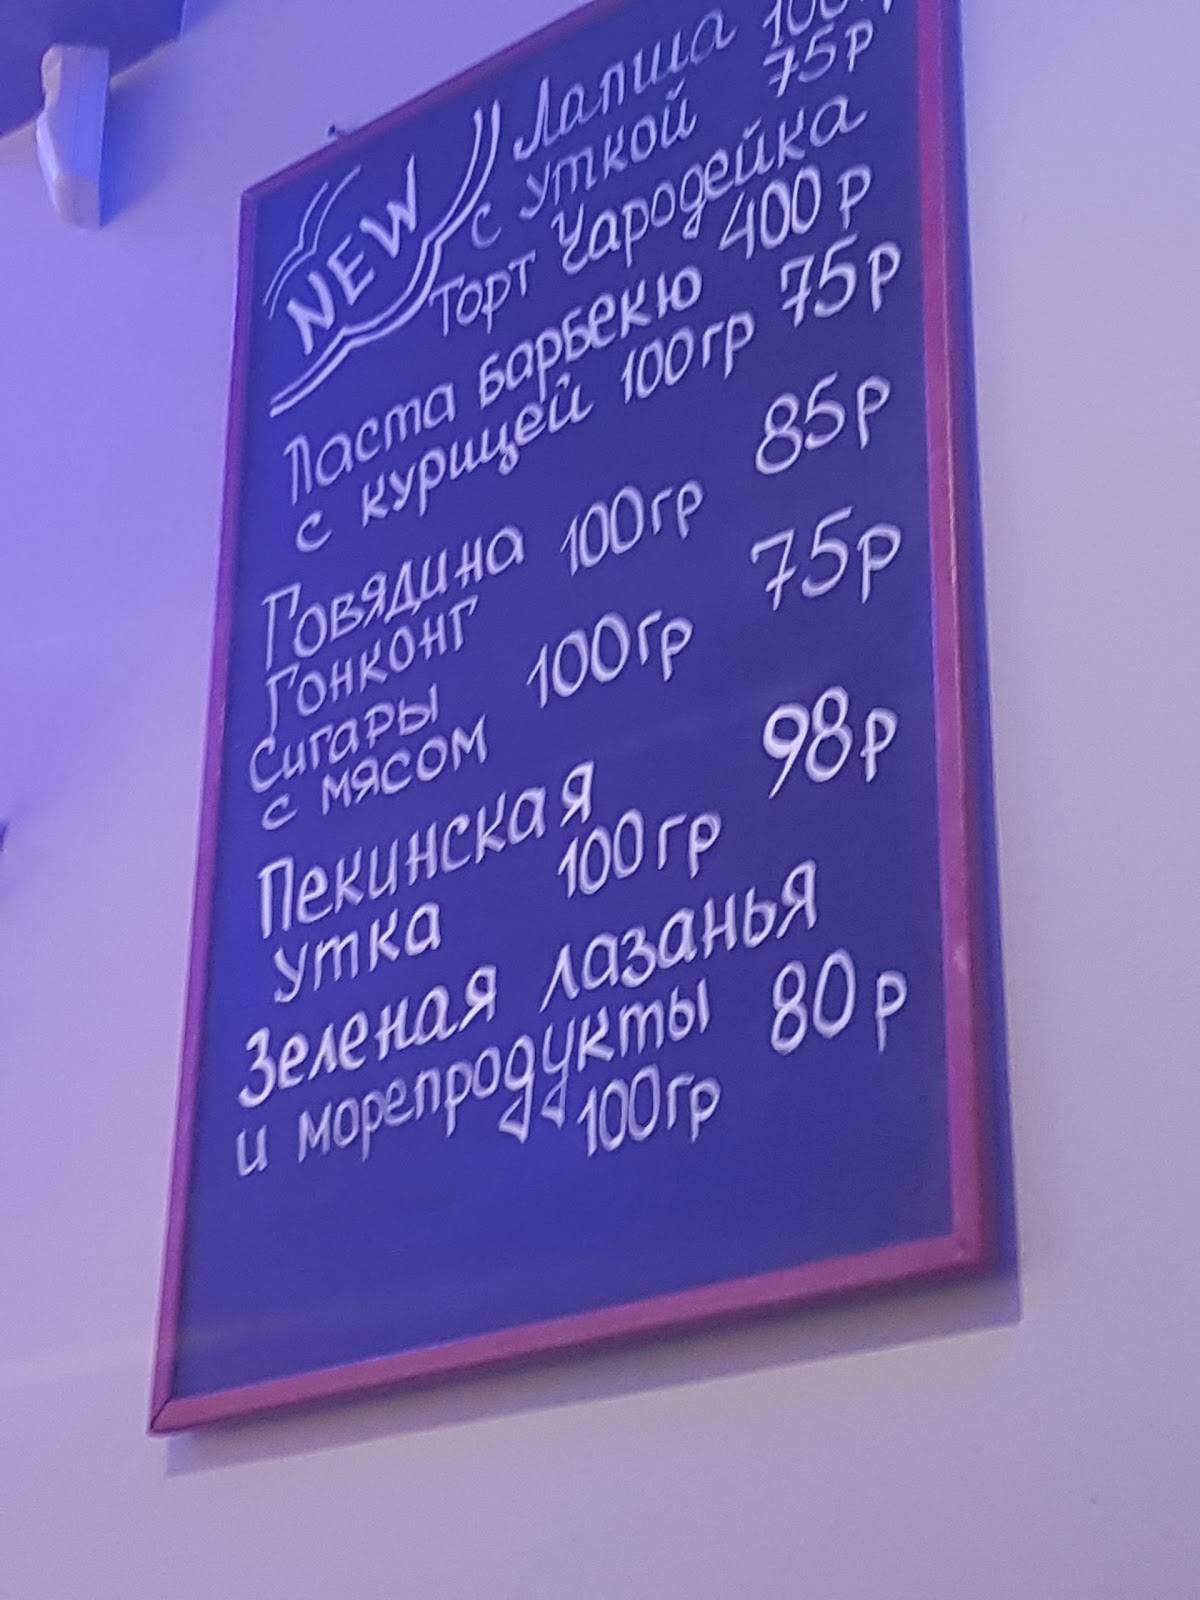 NEW
Лапша 100гр
с уткой 75р
Торт Чародейка
400р
Паста барбекю
с курицей 100гр 75р
Говядина 100гр 85р
Гонконг
Сигары 100гр 75р
с мясом
Пекинская 98р
утка 100гр
Зеленая лазанья
и морепродукты 80р
100гр